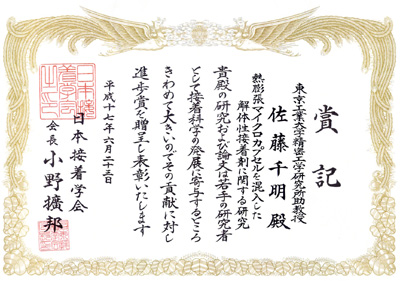 賞記
東京工業大学精密工学研究所助教授
佐藤千明殿
熱膨張マイクロカプセルを混入した
解体性接着剤に関する研究
貴殿の研究および論文は若手の研究者
として接着科学の発展に寄与するところ
きわめて大きいのでその貢献に対し
進歩賞を贈呈し表彰いたします
平成十七年六月二十三日
日本接着学会
会長 小野擴邦
日本接
着学会
之印